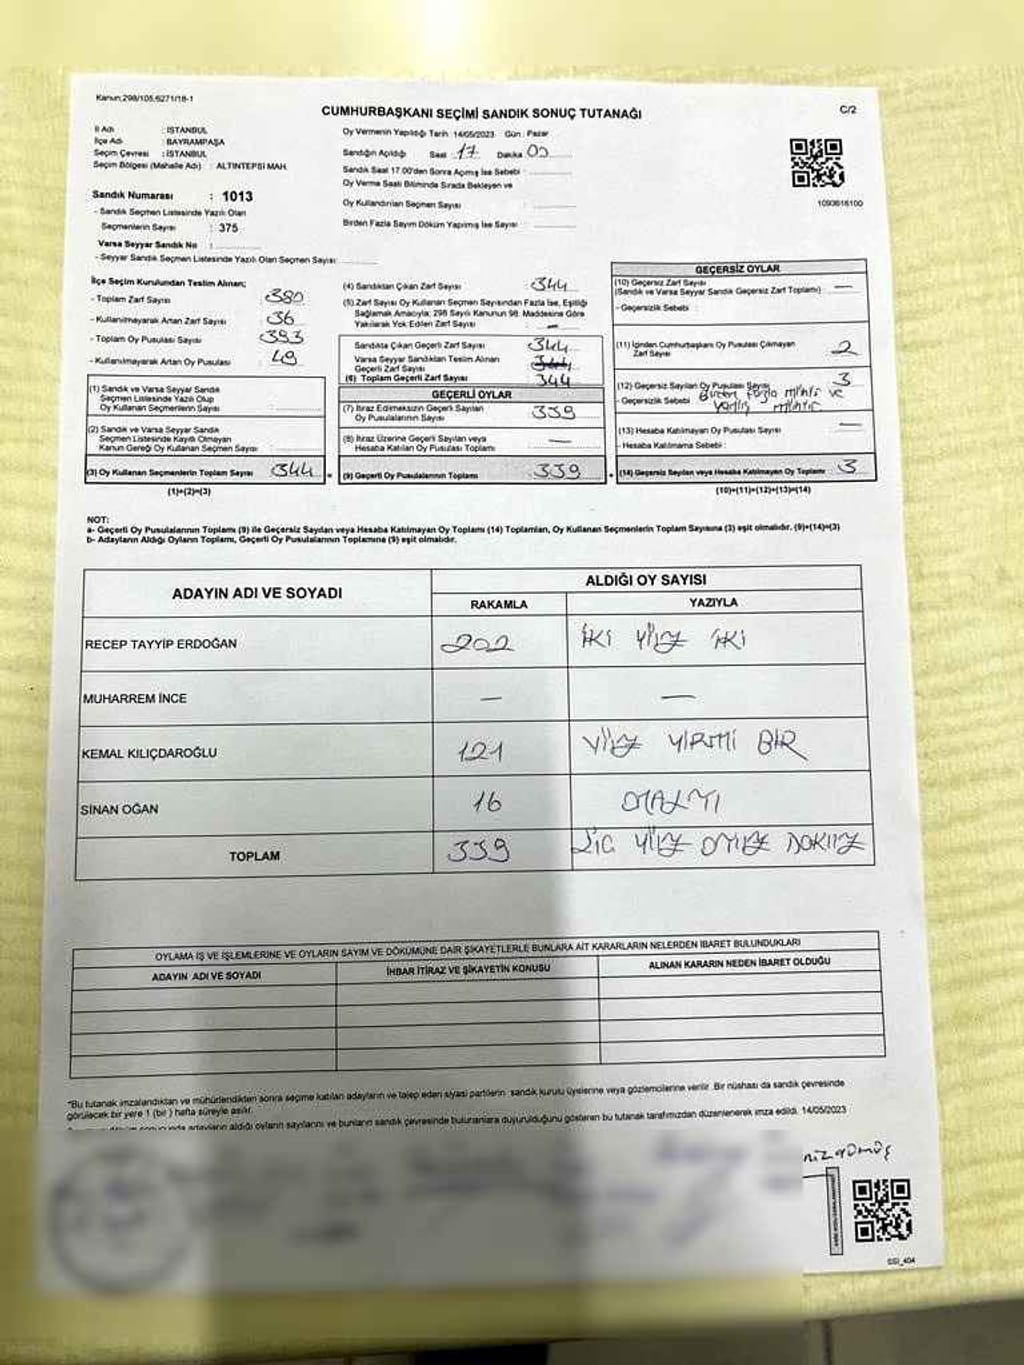 Kanun:298/105,6271/18-1
C/2
CUMHURBAŞKANI SEÇİMİ SANDIK SONUÇ TUTANAĞI
İl Adı : İSTANBUL
İlçe Adı : BAYRAMPAŞA
Seçim Çevresi : İSTANBUL
Seçim Bölgesi (Mahalle Adı) : ALTINTEPSİ MAH.
Sandık Numarası : 1013
- Sandık Seçmen Listesinde Yazılı Olan
Seçmenlerin Sayısı : 375
Varsa Seyyar Sandık No :
- Seyyar Sandık Seçmen Listesinde Yazılı Olan Seçmen Sayısı:
Oy Vermenin Yapıldığı Tarih: 14/05/2023 Gün : Pazar
Sandığın Açıldığı Saat 17 Dakika 00
Sandık Saat 17.00'den Sonra Açılmış İse Sebebi :
Oy Verme Saati Bitiminde Sırada Bekleyen ve
Oy Kullandırılan Seçmen Sayısı :
Birden Fazla Sayım Döküm Yapılmış İse Sayısı :
1093616100
İlçe Seçim Kurulundan Teslim Alınan;
- Toplam Zarf Sayısı : 380
- Kullanılmayarak Artan Zarf Sayısı : 36
- Toplam Oy Pusulası Sayısı : 393
- Kullanılmayarak Artan Oy Pusulası : 49
(1) Sandık ve Varsa Seyyar Sandık
Seçmen Listesinde Yazılı Olup
Oy Kullanan Seçmenlerin Sayısı :
(2) Sandık ve Varsa Seyyar Sandık
Seçmen Listesinde Kayıtlı Olmayan
Kanun Gereği Oy Kullanan Seçmen Sayısı :
(3) Oy Kullanan Seçmenlerin Toplam Sayısı 344 =
(1)+(2)=(3)
(4) Sandıktan Çıkan Zarf Sayısı : 344
(5) Zarf Sayısı Oy Kullanan Seçmen Sayısından Fazla İse, Eşitliği
Sağlamak Amacıyla; 298 Sayılı Kanunun 98. Maddesine Göre
Yakılarak Yok Edilen Zarf Sayısı : —
Sandıkta Çıkan Geçerli Zarf Sayısı : 344
Varsa Seyyar Sandıktan Teslim Alınan
Geçerli Zarf Sayısı
(6) Toplam Geçerli Zarf Sayısı : 344
GEÇERLİ OYLAR
(7) İtiraz Edilmeksizin Geçerli Sayılan
Oy Pusulalarının Sayısı : 339
(8) İtiraz Üzerine Geçerli Sayılan veya
Hesaba Katılan Oy Pusulası Toplamı : —
(9) Geçerli Oy Pusulalarının Toplamı : 339 +
GEÇERSİZ OYLAR
(10) Geçersiz Zarf Sayısı
(Sandık ve Varsa Seyyar Sandık Geçersiz Zarf Toplamı) : —
- Geçersizlik Sebebi :
(11) İçinden Cumhurbaşkanı Oy Pusulası Çıkmayan
Zarf Sayısı : 2
(12) Geçersiz Sayılan Oy Pusulası Sayısı : 3
- Geçersizlik Sebebi : Birden fazla mühür ve
yanlış mühür
(13) Hesaba Katılmayan Oy Pusulası Sayısı : —
- Hesaba Katılmama Sebebi :
(14) Geçersiz Sayılan veya Hesaba Katılmayan Oy Toplamı : 3
(10)+(11)+(12)+(13)=(14)
NOT:
a- Geçerli Oy Pusulalarının Toplamı (9) ile Geçersiz Sayılan veya Hesaba Katılmayan Oy Toplamı (14) Toplamları, Oy Kullanan Seçmenlerin Toplam Sayısına (3) eşit olmalıdır. (9)+(14)=(3)
b- Adayların Aldığı Oyların Toplamı, Geçerli Oy Pusulalarının Toplamına (9) eşit olmalıdır.
ADAYIN ADI VE SOYADI ALDIĞI OY SAYISI
RAKAMLA YAZIYLA
RECEP TAYYİP ERDOĞAN 202 İKİ YÜZ İKİ
MUHARREM İNCE — —
KEMAL KILIÇDAROĞLU 121 YÜZ YİRMİ BİR
SİNAN OĞAN 16 ONALTI
TOPLAM 339 ÜÇ YÜZ OTUZ DOKUZ
OYLAMA İŞ VE İŞLEMLERİNE VE OYLARIN SAYIM VE DÖKÜMÜNE DAİR ŞİKAYETLERLE BUNLARA AİT KARARLARIN NELERDEN İBARET BULUNDUKLARI
ADAYIN ADI VE SOYADI İHBAR İTİRAZ VE ŞİKAYETİN KONUSU ALINAN KARARIN NEDEN İBARET OLDUĞU
*Bu tutanak imzalandıktan ve mühürlendikten sonra seçime katılan adayların ve talep eden siyasi partilerin sandık kurulu üyelerine veya gözlemcilerine verilir. Bir nüshası da sandık çevresinde
görülecek bir yere 1 (bir) hafta süreyle asılır.
adayların aldığı oyların sayılarını ve bunların sandık çevresinde bulunanlara duyurulduğunu gösteren bu tutanak tarafımızdan düzenlenerek imza edildi. 14/05/2023
SSI_404